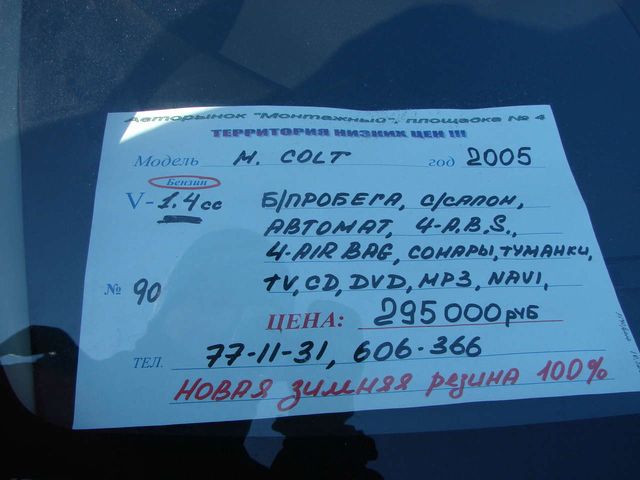 Авторынок "Монтажный", площадка № 4
ТЕРРИТОРИЯ НИЗКИХ ЦЕН !!!
Модель M. COLT год 2005
Бензин
V- 1.4 cc Б/ПРОБЕГА, С/САЛОН,
АВТОМАТ, 4-A.B.S.,
4-AIR BAG, СОНАРЫ, ТУМАНКИ,
№ 90 TV, CD, DVD, MP3, NAVI,
ЦЕНА: 295000 РУБ
ТЕЛ. 77-11-31, 606-366
НОВАЯ ЗИМНЯЯ РЕЗИНА 100%